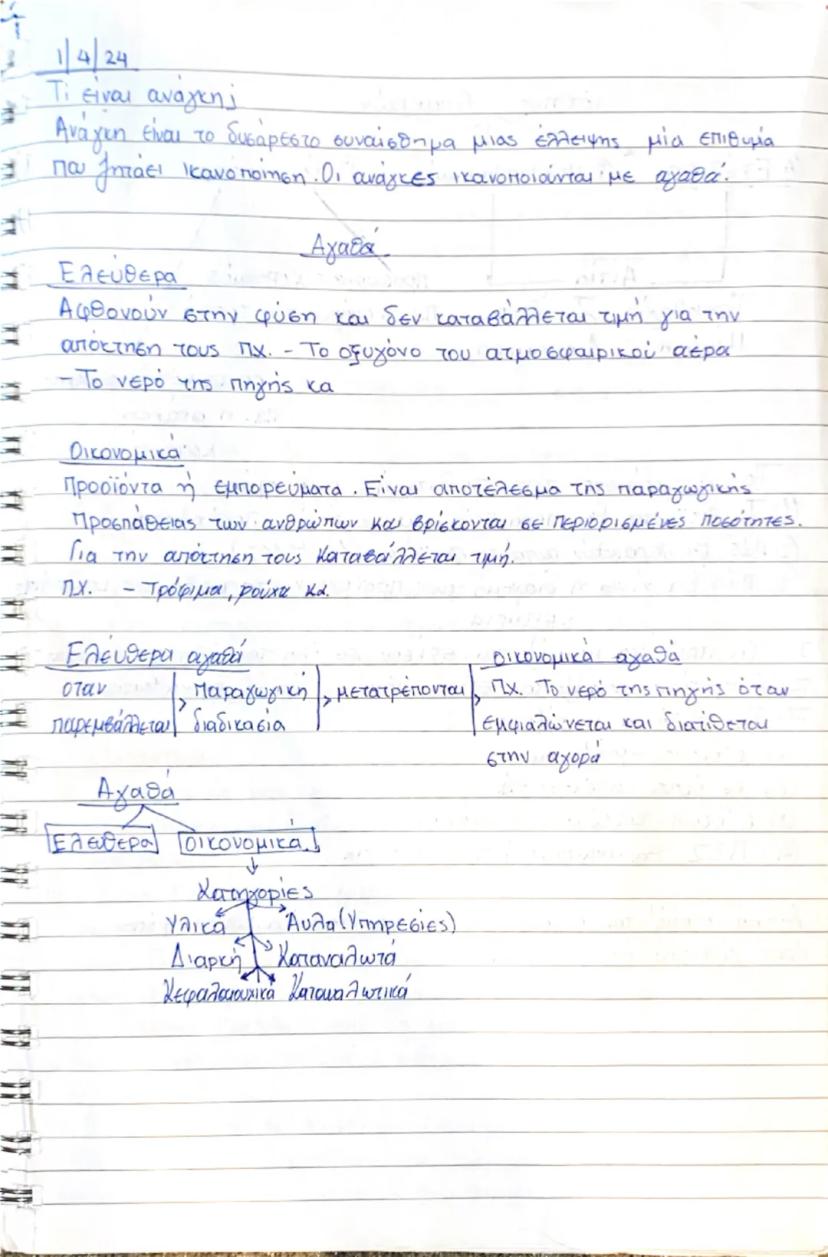 1/4/24
Τι είναι ανάγκη;
Ανάγκη είναι το δυσάρεστο συναίσθημα μιας έλλειψης μία επιθυμία
που ζητάει ικανοποίηση. Οι ανάγκες ικανοποιούνται με αγαθά.
Αγαθά
Ελεύθερα
Αφθονούν στην φύση και δεν καταβάλλεται τιμή για την
απόκτηση τους πχ. - Το οξυγόνο του ατμοσφαιρικού αέρα
- Το νερό της πηγής κα
Οικονομικά
Προϊόντα ή εμπορεύματα. Είναι αποτέλεσμα της παραγωγικής
Προσπάθειας των ανθρώπων και βρίσκονται σε περιορισμένες ποσότητες.
Για την απόκτηση τους καταβάλλεται τιμή.
πχ. - Τρόφιμα, ρούχα κα.
Ελεύθερα αγαθά Οικονομικά αγαθά
όταν Παραγωγική μετατρέπονται πχ. Το νερό της πηγής όταν
παρεμβάλλεται διαδικασία εμφιαλώνεται και διατίθεται
στην αγορά
Αγαθά
Ελεύθερα Οικονομικά
Κατηγορίες
Υλικά Άυλα (Υπηρεσίες)
Διαρκή Καταναλωτά
Κεφαλαιουχικά Καταναλωτικά